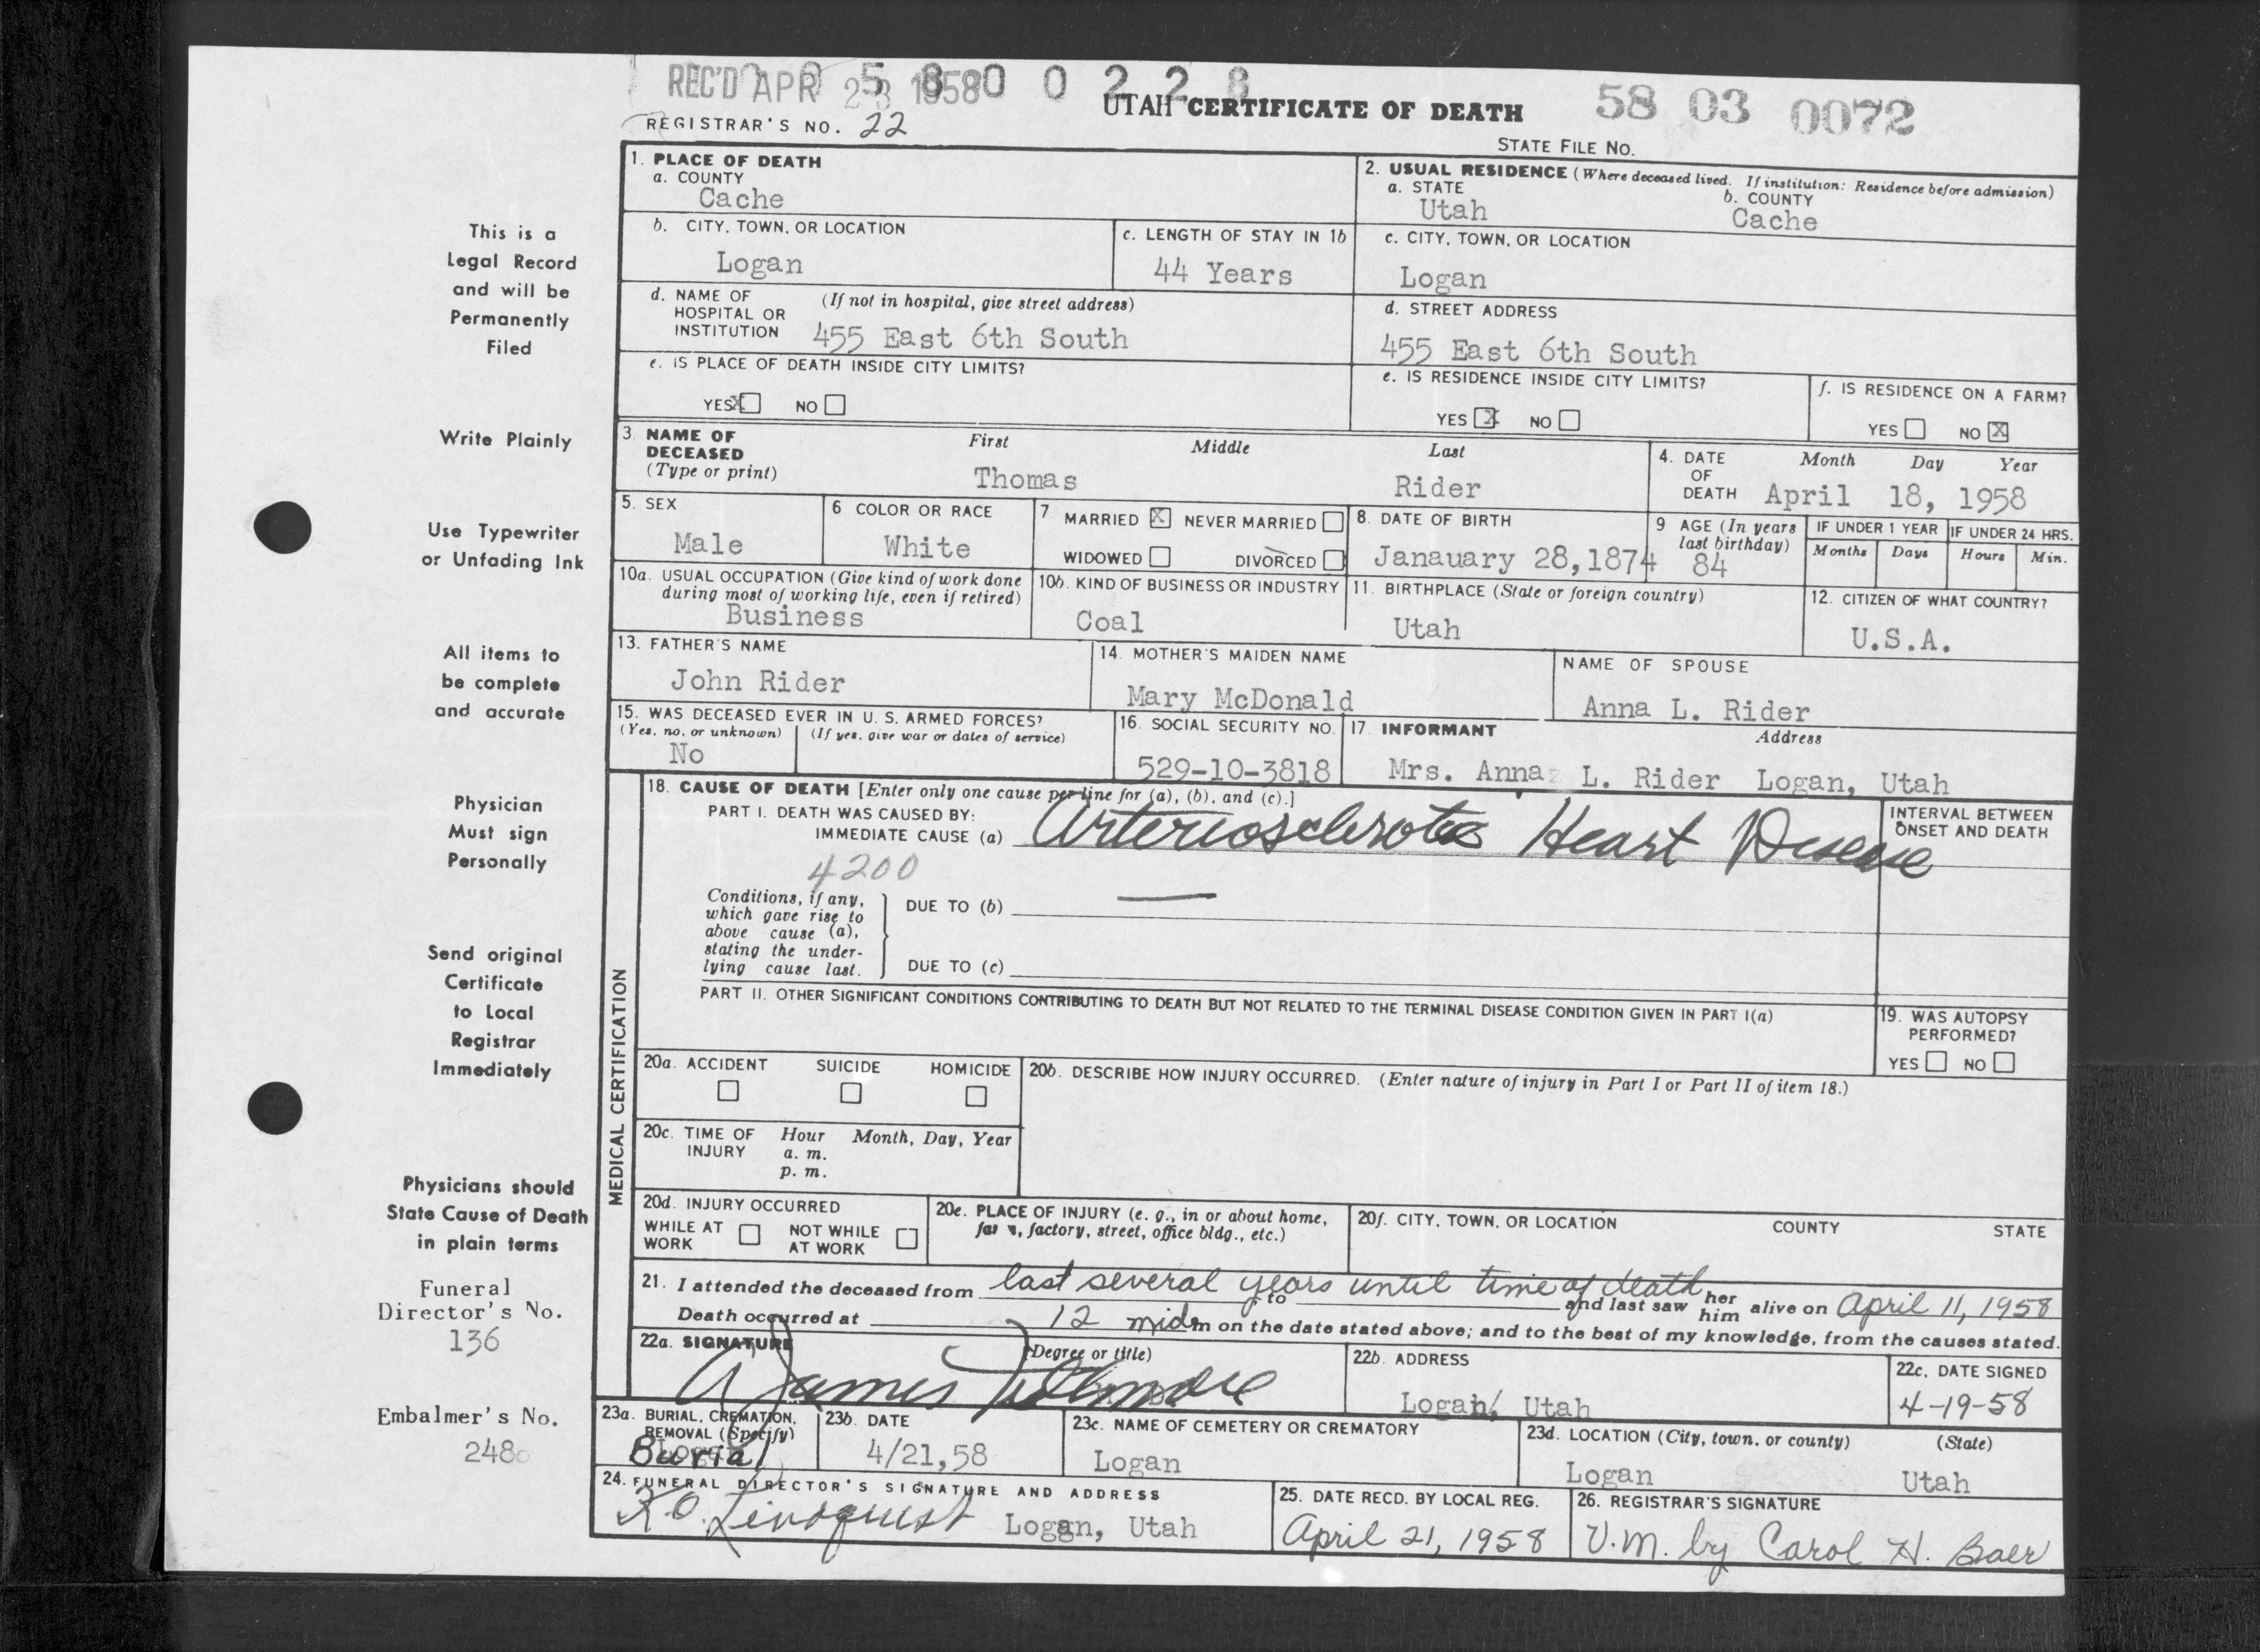 REC'D APR 23 1958
5 8 0 0 2 2 8
UTAH CERTIFICATE OF DEATH
58 03 0072
REGISTRAR'S NO. 22
STATE FILE NO.
1. PLACE OF DEATH
a. COUNTY
Cache
2. USUAL RESIDENCE (Where deceased lived. If institution: Residence before admission)
a. STATE
Utah
b. COUNTY
Cache
b. CITY, TOWN, OR LOCATION
Logan
c. LENGTH OF STAY IN 1b
44 Years
c. CITY, TOWN, OR LOCATION
Logan
d. NAME OF HOSPITAL OR INSTITUTION
(If not in hospital, give street address)
455 East 6th South
d. STREET ADDRESS
455 East 6th South
e. IS PLACE OF DEATH INSIDE CITY LIMITS?
YES X NO
e. IS RESIDENCE INSIDE CITY LIMITS?
YES X NO
f. IS RESIDENCE ON A FARM?
YES NO X
3. NAME OF DECEASED (Type or print)
First Middle Last
Thomas Rider
4. DATE OF DEATH
Month Day Year
April 18, 1958
5. SEX
Male
6 COLOR OR RACE
White
7 MARRIED X NEVER MARRIED
WIDOWED DIVORCED
8. DATE OF BIRTH
Janauary 28,1874
9 AGE (In years last birthday)
84
IF UNDER 1 YEAR
Months Days
IF UNDER 24 HRS.
Hours Min.
10a. USUAL OCCUPATION (Give kind of work done during most of working life, even if retired)
Business
10b. KIND OF BUSINESS OR INDUSTRY
Coal
11. BIRTHPLACE (State or foreign country)
Utah
12. CITIZEN OF WHAT COUNTRY?
U.S.A.
13. FATHER'S NAME
John Rider
14. MOTHER'S MAIDEN NAME
Mary McDonald
NAME OF SPOUSE
Anna L. Rider
15. WAS DECEASED EVER IN U. S. ARMED FORCES?
(Yes, no, or unknown) (If yes, give war or dates of service)
No
16. SOCIAL SECURITY NO.
529-10-3818
17. INFORMANT Address
Mrs. Anna L. Rider Logan, Utah
18. CAUSE OF DEATH [Enter only one cause per line for (a), (b), and (c).]
PART I. DEATH WAS CAUSED BY:
IMMEDIATE CAUSE (a) Arteriosclerotic Heart Disease
4200
INTERVAL BETWEEN ONSET AND DEATH
Conditions, if any, which gave rise to above cause (a), stating the underlying cause last.
DUE TO (b) —
DUE TO (c)
PART II. OTHER SIGNIFICANT CONDITIONS CONTRIBUTING TO DEATH BUT NOT RELATED TO THE TERMINAL DISEASE CONDITION GIVEN IN PART I(a)
19. WAS AUTOPSY PERFORMED?
YES NO
20a. ACCIDENT SUICIDE HOMICIDE
20b. DESCRIBE HOW INJURY OCCURRED. (Enter nature of injury in Part I or Part II of item 18.)
20c. TIME OF INJURY
Hour Month, Day, Year
a. m.
p. m.
20d. INJURY OCCURRED
WHILE AT WORK NOT WHILE AT WORK
20e. PLACE OF INJURY (e. g., in or about home, factory, street, office bldg., etc.)
20f. CITY, TOWN, OR LOCATION COUNTY STATE
21. I attended the deceased from last several years until time of death, to and last saw her him alive on April 11, 1958
Death occurred at 12 mid m on the date stated above; and to the best of my knowledge, from the causes stated.
22a. SIGNATURE (Degree or title)
22b. ADDRESS
Logan, Utah
22c. DATE SIGNED
4-19-58
23a. BURIAL, CREMATION, REMOVAL (Specify)
Burial
23b. DATE
4/21,58
23c. NAME OF CEMETERY OR CREMATORY
Logan
23d. LOCATION (City, town, or county) (State)
Logan Utah
24. FUNERAL DIRECTOR'S SIGNATURE AND ADDRESS
Lindquist Logan, Utah
25. DATE RECD. BY LOCAL REG.
April 21, 1958
26. REGISTRAR'S SIGNATURE
V.M. by Carol H. Baer
MEDICAL CERTIFICATION
This is a
Legal Record
and will be
Permanently
Filed
Write Plainly
Use Typewriter
or Unfading Ink
All items to
be complete
and accurate
Physician
Must sign
Personally
Send original
Certificate
to Local
Registrar
Immediately
Physicians should
State Cause of Death
in plain terms
Funeral
Director's No.
136
Embalmer's No.
248